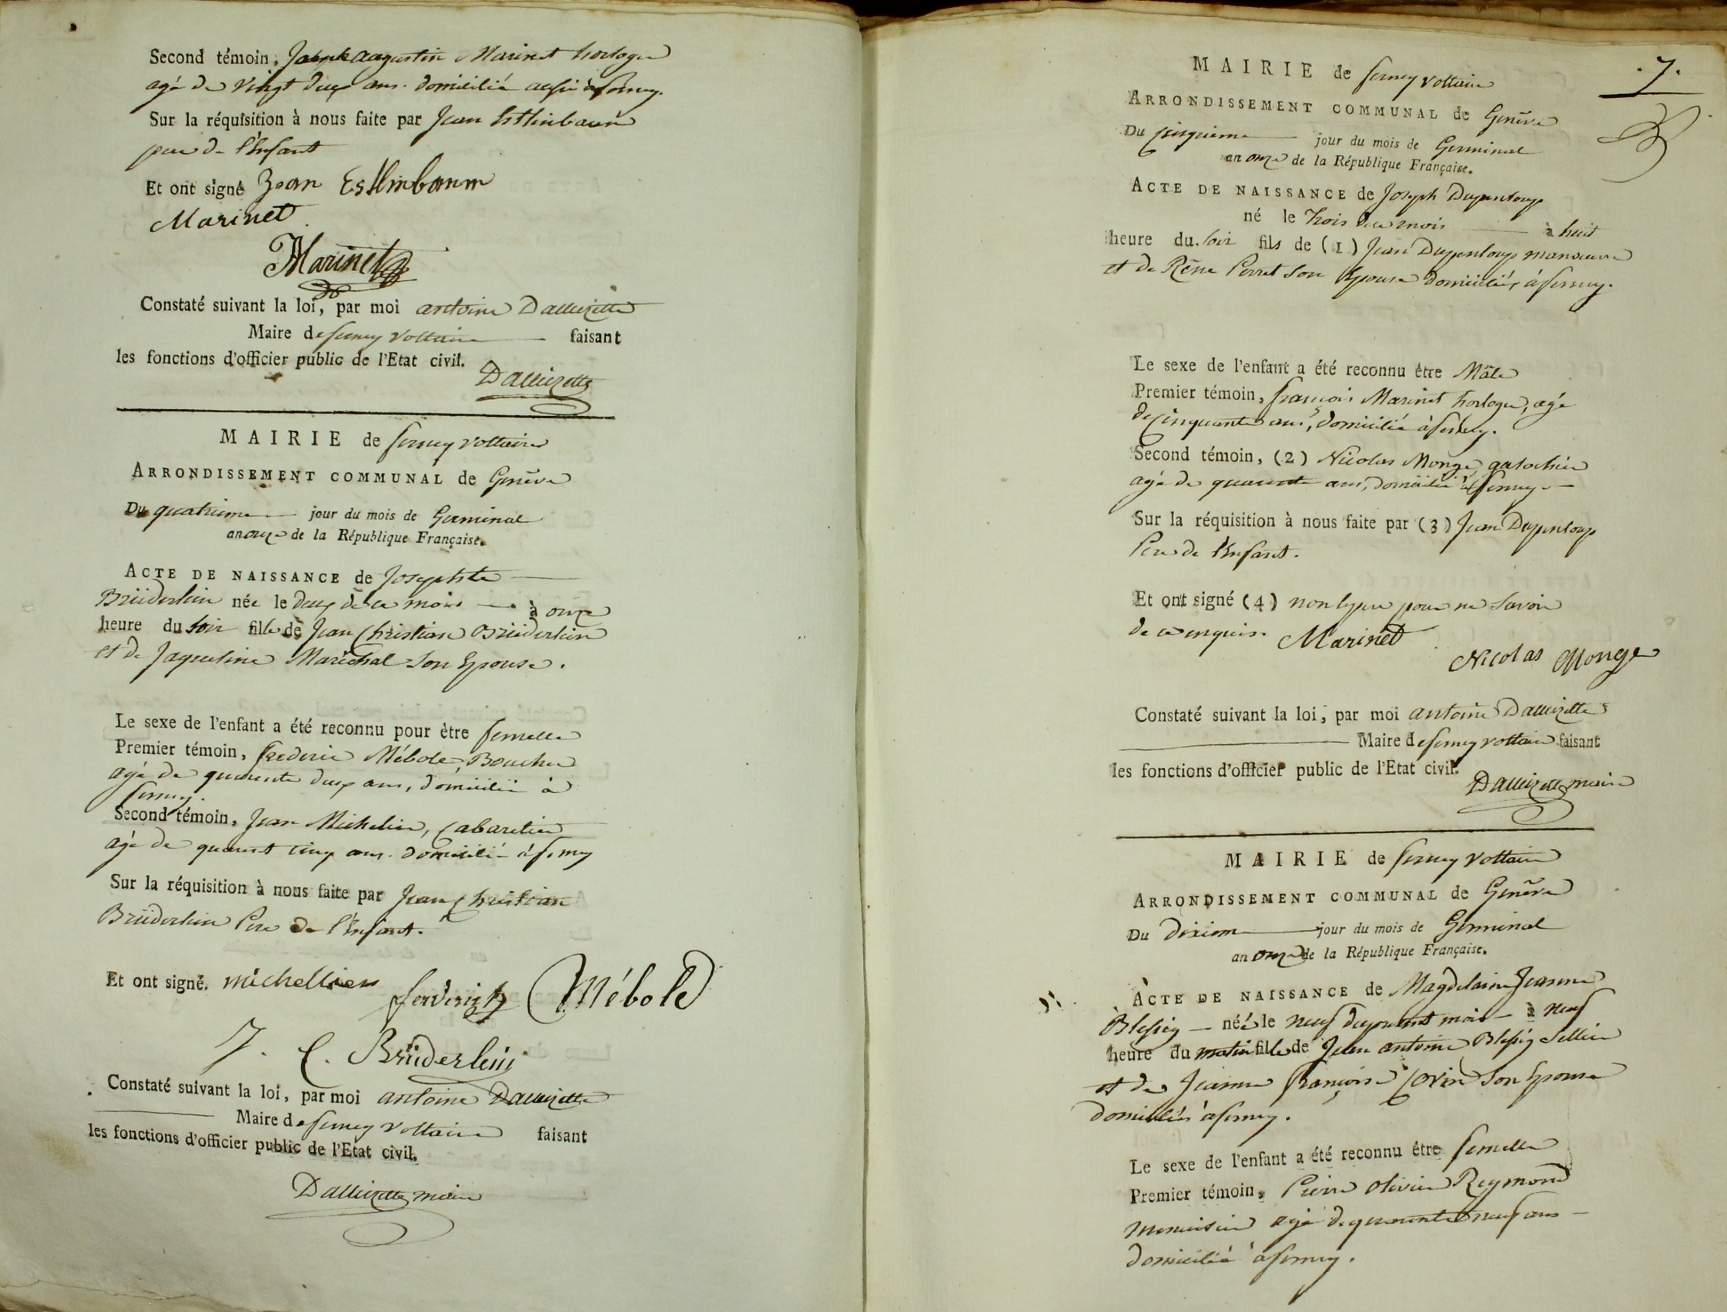 Second témoin, Joseph augustin Marinet horloger
agé de vingt deux ans. domicilié aussi à ferney.
Sur la réquisition à nous faite par Jean Esthinbaum
pere de l'Enfant
Et ont signé Jean Esthinbaum
Marinet
Marinet
Constaté suivant la loi, par moi antoine Dallizette
Maire de ferney voltaire faisant
les fonctions d'officier public de l'Etat civil.
Dallizette
MAIRIE de ferney voltaire
ARRONDISSEMENT COMMUNAL de Genêve
Du quatrieme jour du mois de Germinal
an onze de la République Française.
ACTE DE NAISSANCE de Josephte
Brüderlein née le deux de ce mois à onze
heure du soir fille de Jean Christian Brüderlein
et de Jaqueline Maréchal son Epouse.
Le sexe de l'enfant a été reconnu pour être femelle
Premier témoin, frederic Mébole, Boucher
agé de quarente deux ans, domicilié à
ferney.
Second témoin, Jean Michelier, Cabaretier
agé de quarent cinq ans. domicilié à ferney
Sur la réquisition à nous faite par Jean Christian
Brüderlein Pere de l'Enfant.
Et ont signé. michellier ferderigh Mébole
J. C. Brüderlein
Constaté suivant la loi, par moi antoine Dallizette
Maire de ferney voltaire faisant
les fonctions d'officier public de l'Etat civil.
Dallizette maire
7.
MAIRIE de ferney voltaire
ARRONDISSEMENT COMMUNAL de Genêve
Du cinquieme jour du mois de Germinal
an onze de la République Française.
ACTE DE NAISSANCE de Joseph Dupenloup
né le trois de ce mois à huit
heure du soir fils de (1) Jean Dupenloup manœuvre
et de Rêne Perret son Epouse domiciliés à ferney.
Le sexe de l'enfant a été reconnu être Mâle
Premier témoin, françois Marinet horloger, agé
de Cinquante ans, domicilié à ferney.
Second témoin, (2) Nicolas Monge, galochier
agé de quarente ans, domicilié à ferney
Sur la réquisition à nous faite par (3) Jean Dupenloup
Pere de l'Enfant.
Et ont signé (4) non le pere pour ne savoir
de ce enquis. Marinet
Nicolas Monge
Constaté suivant la loi, par moi antoine Dallizette
Maire de ferney voltaire faisant
les fonctions d'officier public de l'Etat civil.
Dallizette maire
MAIRIE de ferney voltaire
ARRONDISSEMENT COMMUNAL de Genêve
Du dixieme jour du mois de Germinal
an onze de la République Française.
ACTE DE NAISSANCE de Magdelaine Jeanne
Blessig née le neuf du present mois à neuf
heure du matin fille de Jean antoine Blessig sellier
et de Jeanne françoise Corin son Epouse
domiciliés à ferney.
Le sexe de l'enfant a été reconnu être femelle
Premier témoin, Pierre olivier Reymond
menuisier agé de quarente neuf ans
domicilié à ferney.